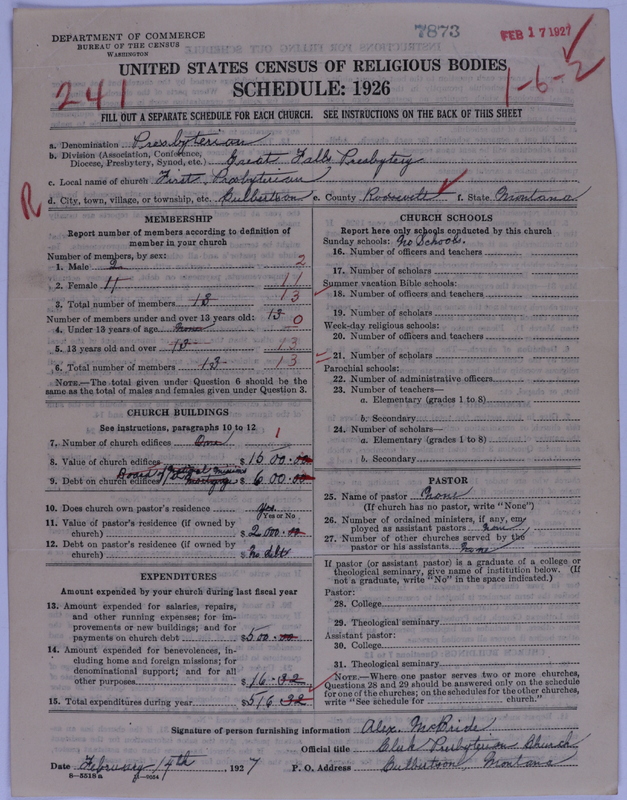 7873
FEB 17 1927
DEPARTMENT OF COMMERCE
BUREAU OF THE CENSUS
WASHINGTON
UNITED STATES CENSUS OF RELIGIOUS BODIES
1-6-2
241
SCHEDULE: 1926
FILL OUT A SEPARATE SCHEDULE FOR EACH CHURCH. SEE INSTRUCTIONS ON THE BACK OF THIS SHEET
a. Denomination Presbyterian
b. Division (Association, Conference, Diocese, Presbytery, Synod, etc.) Great Falls Presbytery
c. Local name of church First Presbyterian
R
d. City, town, village, or township, etc. Culbertson e. County Roosevelt f. State Montana
MEMBERSHIP
Report number of members according to definition of
member in your church
Number of members, by sex:
1. Male 2 2
2. Female 11 11
3. Total number of members 13 13
Number of members under and over 13 years old: 13
4. Under 13 years of age None 0
5. 13 years old and over 13 13
6. Total number of members 13 13
NOTE.—The total given under Question 6 should be the
same as the total of males and females given under Question 3.
CHURCH BUILDINGS
See instructions, paragraphs 10 to 12
7. Number of church edifices One 1
8. Value of church edifices $1500.00
9. Debt on church edifices Board of National Missions mortgage $600.00
10. Does church own pastor's residence Yes
(Yes or No)
11. Value of pastor's residence (if owned by
church) $2000.00
12. Debt on pastor's residence (if owned by
church) $No debt
EXPENDITURES
Amount expended by your church during last fiscal year
13. Amount expended for salaries, repairs,
and other running expenses; for im-
provements or new buildings; and for
payments on church debt $500.00
14. Amount expended for benevolences, in-
cluding home and foreign missions; for
denominational support; and for all
other purposes $16.32
15. Total expenditures during year $516.32
CHURCH SCHOOLS
Report here only schools conducted by this church
Sunday schools: No Schools.
16. Number of officers and teachers
17. Number of scholars
Summer vacation Bible schools:
18. Number of officers and teachers
19. Number of scholars
Week-day religious schools:
20. Number of officers and teachers
21. Number of scholars
Parochial schools:
22. Number of administrative officers
23. Number of teachers—
a. Elementary (grades 1 to 8)
b. Secondary
24. Number of scholars—
a. Elementary (grades 1 to 8)
b. Secondary
PASTOR
25. Name of pastor None
(If church has no pastor, write "None")
26. Number of ordained ministers, if any, em-
ployed as assistant pastors None
27. Number of other churches served by the
pastor or his assistants None
If pastor (or assistant pastor) is a graduate of a college or
theological seminary, give name of institution below. (If
not a graduate, write "No" in the space indicated.)
Pastor:
28. College
29. Theological seminary
Assistant pastor:
30. College
31. Theological seminary
NOTE.—Where one pastor serves two or more churches,
Questions 28 and 29 should be answered only on the schedule
for one of the churches; on the schedules for the other churches,
write "See schedule for church."
Signature of person furnishing information Alex. McBride
Official title Clerk Presbyterian Church
Date February 14th 1927 P. O. Address Culbertson Montana
8—5518a